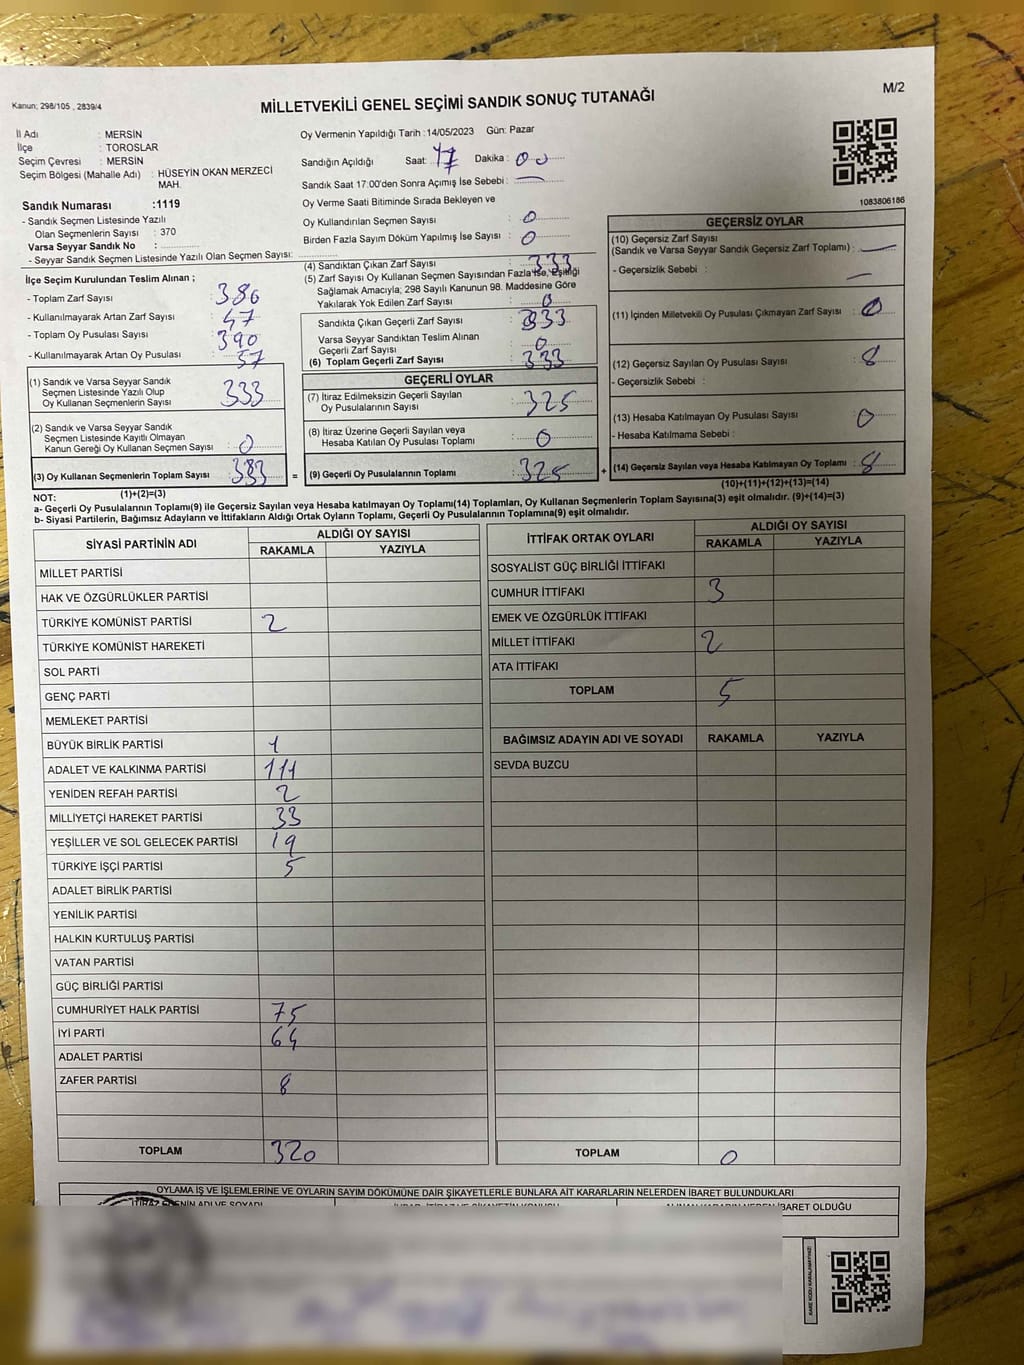 Kanun; 298/105 , 2839/4
M/2
MİLLETVEKİLİ GENEL SEÇİMİ SANDIK SONUÇ TUTANAĞI
İl Adı : MERSİN
İlçe : TOROSLAR
Seçim Çevresi : MERSİN
Seçim Bölgesi (Mahalle Adı) : HÜSEYİN OKAN MERZECİ
MAH.
Sandık Numarası :1119
- Sandık Seçmen Listesinde Yazılı
Olan Seçmenlerin Sayısı : 370
Varsa Seyyar Sandık No :
- Seyyar Sandık Seçmen Listesinde Yazılı Olan Seçmen Sayısı:
Oy Vermenin Yapıldığı Tarih :14/05/2023 Gün: Pazar
Sandığın Açıldığı Saat: 17 Dakika : 00
Sandık Saat 17:00'den Sonra Açımış İse Sebebi :
Oy Verme Saati Bitiminde Sırada Bekleyen ve
Oy Kullandırılan Seçmen Sayısı : 0
Birden Fazla Sayım Döküm Yapılmış İse Sayısı : 0
1083806186
İlçe Seçim Kurulundan Teslim Alınan ;
- Toplam Zarf Sayısı : 386
- Kullanılmayarak Artan Zarf Sayısı : 47
- Toplam Oy Pusulası Sayısı : 390
- Kullanılmayarak Artan Oy Pusulası : 57
(1) Sandık ve Varsa Seyyar Sandık
Seçmen Listesinde Yazılı Olup
Oy Kullanan Seçmenlerin Sayısı : 333
(2) Sandık ve Varsa Seyyar Sandık
Seçmen Listesinde Kayıtlı Olmayan
Kanun Gereği Oy Kullanan Seçmen Sayısı : 0
(3) Oy Kullanan Seçmenlerin Toplam Sayısı : 333
(4) Sandıktan Çıkan Zarf Sayısı : 333
(5) Zarf Sayısı Oy Kullanan Seçmen Sayısından Fazla İse, Eşitliği
Sağlamak Amacıyla; 298 Sayılı Kanunun 98. Maddesine Göre
Yakılarak Yok Edilen Zarf Sayısı : 0
Sandıkta Çıkan Geçerli Zarf Sayısı : 333
Varsa Seyyar Sandıktan Teslim Alınan
Geçerli Zarf Sayısı : 0
(6) Toplam Geçerli Zarf Sayısı : 333
GEÇERLİ OYLAR
(7) İtiraz Edilmeksizin Geçerli Sayılan
Oy Pusulalarının Sayısı : 325
(8) İtiraz Üzerine Geçerli Sayılan veya
Hesaba Katılan Oy Pusulası Toplamı : 0
= (9) Geçerli Oy Pusulalarının Toplamı : 325 +
GEÇERSİZ OYLAR
(10) Geçersiz Zarf Sayısı
(Sandık ve Varsa Seyyar Sandık Geçersiz Zarf Toplamı) :
- Geçersizlik Sebebi :
(11) İçinden Milletvekili Oy Pusulası Çıkmayan Zarf Sayısı : 0
(12) Geçersiz Sayılan Oy Pusulası Sayısı : 8
- Geçersizlik Sebebi :
(13) Hesaba Katılmayan Oy Pusulası Sayısı : 0
- Hesaba Katılmama Sebebi :
(14) Geçersiz Sayılan veya Hesaba Katılmayan Oy Toplamı : 8
(1)+(2)=(3)
(10)+(11)+(12)+(13)=(14)
NOT:
a- Geçerli Oy Pusulalarının Toplamı(9) ile Geçersiz Sayılan veya Hesaba katılmayan Oy Toplamı(14) Toplamları, Oy Kullanan Seçmenlerin Toplam Sayısına(3) eşit olmalıdır. (9)+(14)=(3)
b- Siyasi Partilerin, Bağımsız Adayların ve İttifakların Aldığı Ortak Oyların Toplamı, Geçerli Oy Pusulalarının Toplamına(9) eşit olmalıdır.
SİYASİ PARTİNİN ADI ALDIĞI OY SAYISI
RAKAMLA YAZIYLA
MİLLET PARTİSİ
HAK VE ÖZGÜRLÜKLER PARTİSİ
TÜRKİYE KOMÜNİST PARTİSİ 2
TÜRKİYE KOMÜNİST HAREKETİ
SOL PARTİ
GENÇ PARTİ
MEMLEKET PARTİSİ
BÜYÜK BİRLİK PARTİSİ 1
ADALET VE KALKINMA PARTİSİ 111
YENİDEN REFAH PARTİSİ 2
MİLLİYETÇİ HAREKET PARTİSİ 33
YEŞİLLER VE SOL GELECEK PARTİSİ 19
TÜRKİYE İŞÇİ PARTİSİ 5
ADALET BİRLİK PARTİSİ
YENİLİK PARTİSİ
HALKIN KURTULUŞ PARTİSİ
VATAN PARTİSİ
GÜÇ BİRLİĞİ PARTİSİ
CUMHURİYET HALK PARTİSİ 75
İYİ PARTİ 64
ADALET PARTİSİ
ZAFER PARTİSİ 8
TOPLAM 320
İTTİFAK ORTAK OYLARI ALDIĞI OY SAYISI
RAKAMLA YAZIYLA
SOSYALİST GÜÇ BİRLİĞİ İTTİFAKI
CUMHUR İTTİFAKI 3
EMEK VE ÖZGÜRLÜK İTTİFAKI
MİLLET İTTİFAKI 2
ATA İTTİFAKI
TOPLAM 5
BAĞIMSIZ ADAYIN ADI VE SOYADI RAKAMLA YAZIYLA
SEVDA BUZCU
TOPLAM 0
OYLAMA İŞ VE İŞLEMLERİNE VE OYLARIN SAYIM DÖKÜMÜNE DAİR ŞİKAYETLERLE BUNLARA AİT KARARLARIN NELERDEN İBARET BULUNDUKLARI
İTİRAZ EDENİN ADI VE SOYADI
İBARET OLDUĞU